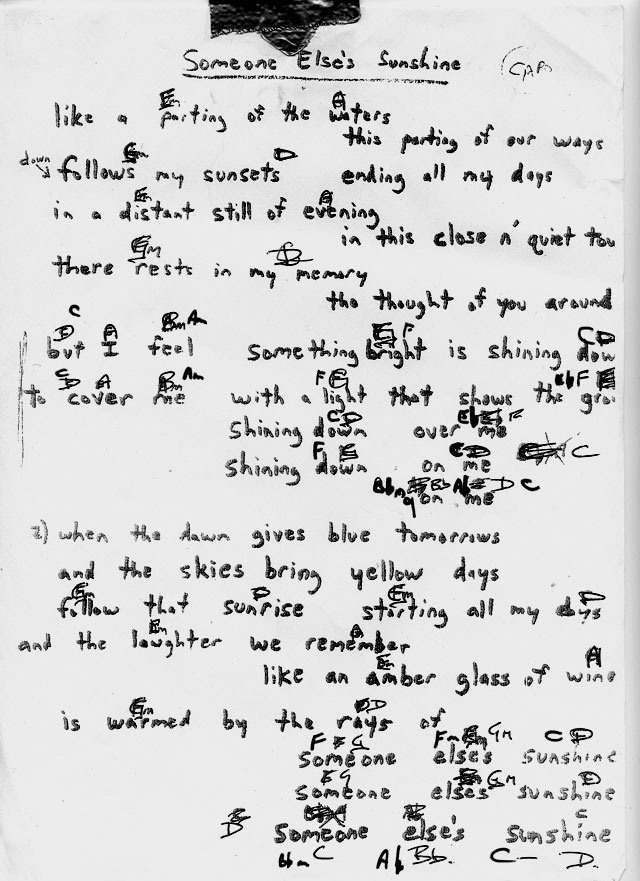 Someone Else's Sunshine
Em A
like a parting of the waters
this parting of our ways
down Em D
follows my sunsets ending all my days
Em A
in a distant still of evening
in this close n' quiet tow
Em
there rests in my memory
the thought of you around
C
D A Bm Am F C D
but I feel something bright is shining dow
C D A Bm Am F E Eb F E
to cover me with a light that shows the gro
C D
shining down over me
F E C D C
shining down on me
Bbm Bb Ab D C
on me
2) when the dawn gives blue tomorrows
and the skies bring yellow days
Em D Em D
follow that sunrise starting all my days
Em A
and the laughter we remember
Em A
like an amber glass of wine
Em D
is warmed by the rays of
F G Fm Gm C D
someone else's sunshine
G Gm D
someone elses sunshine
C
D someone else's sunshine
Bbm C Ab Bb. C – D.